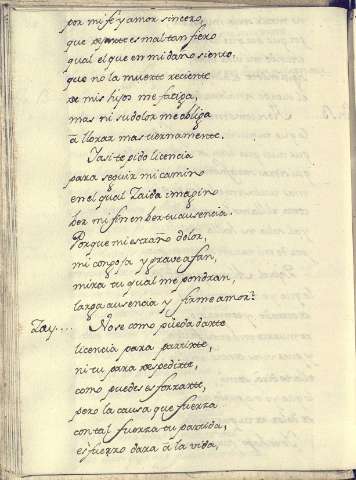 por mi fe y amor sincero,
que dejarte es mal tan fiero
qual el que en mi daño siento.
que no la muerte reciente
de mis hijos me fatiga,
mas ni su dolor me obliga
a llorar mas tiernamente.
Iasi te pido licencia
para seguir mi camino
en el qual Zaida imagino
ber mi fin en ber tu ausencia.
Porque mi estraño dolor,
mi congoja y grave afan,
mira tu qual me pondran,
larga ausencia y firme amor?
Zay.... No se como pueda darte
licencia para partirte,
ni tu para despedirte,
como puedes esforzarte,
pero la causa que fuerza
con tal fuerza tu partida,
esfuerzo dara a la vida,